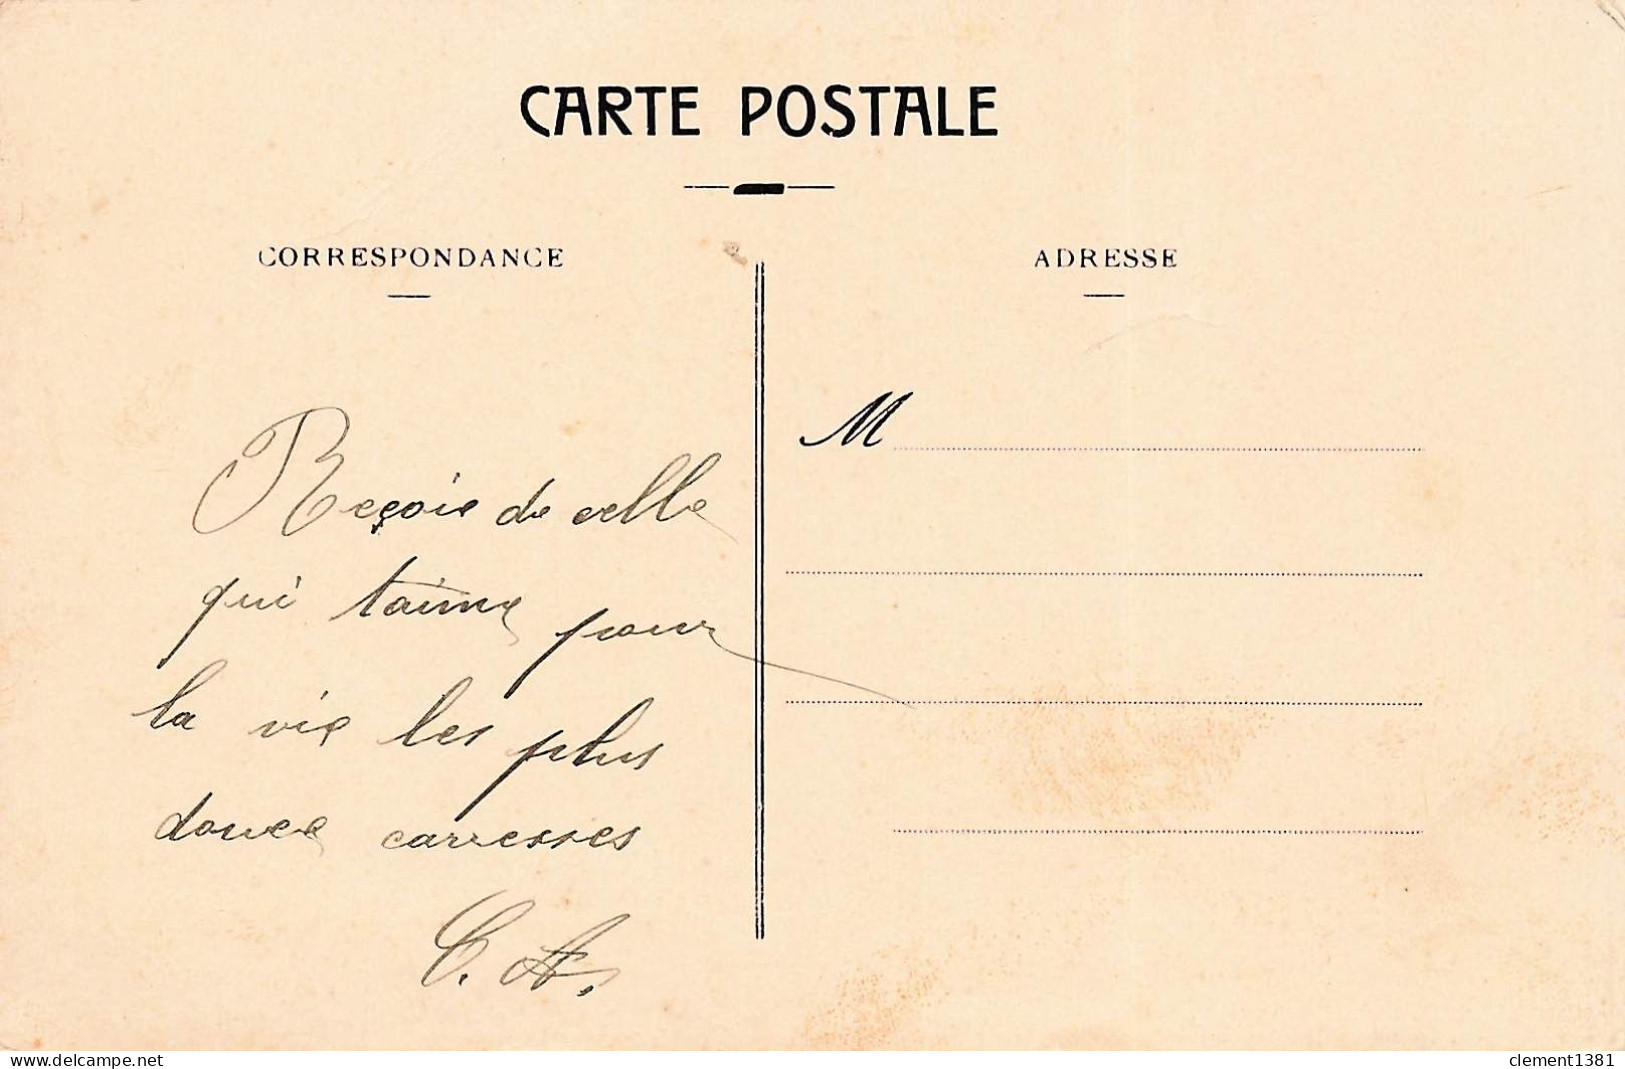 CARTE POSTALE
CORRESPONDANCE
ADRESSE
M
Reçois de celle
qui taime pour
la vie les plus
douce carresses
C. A.
www.delcampe.net
clement1381